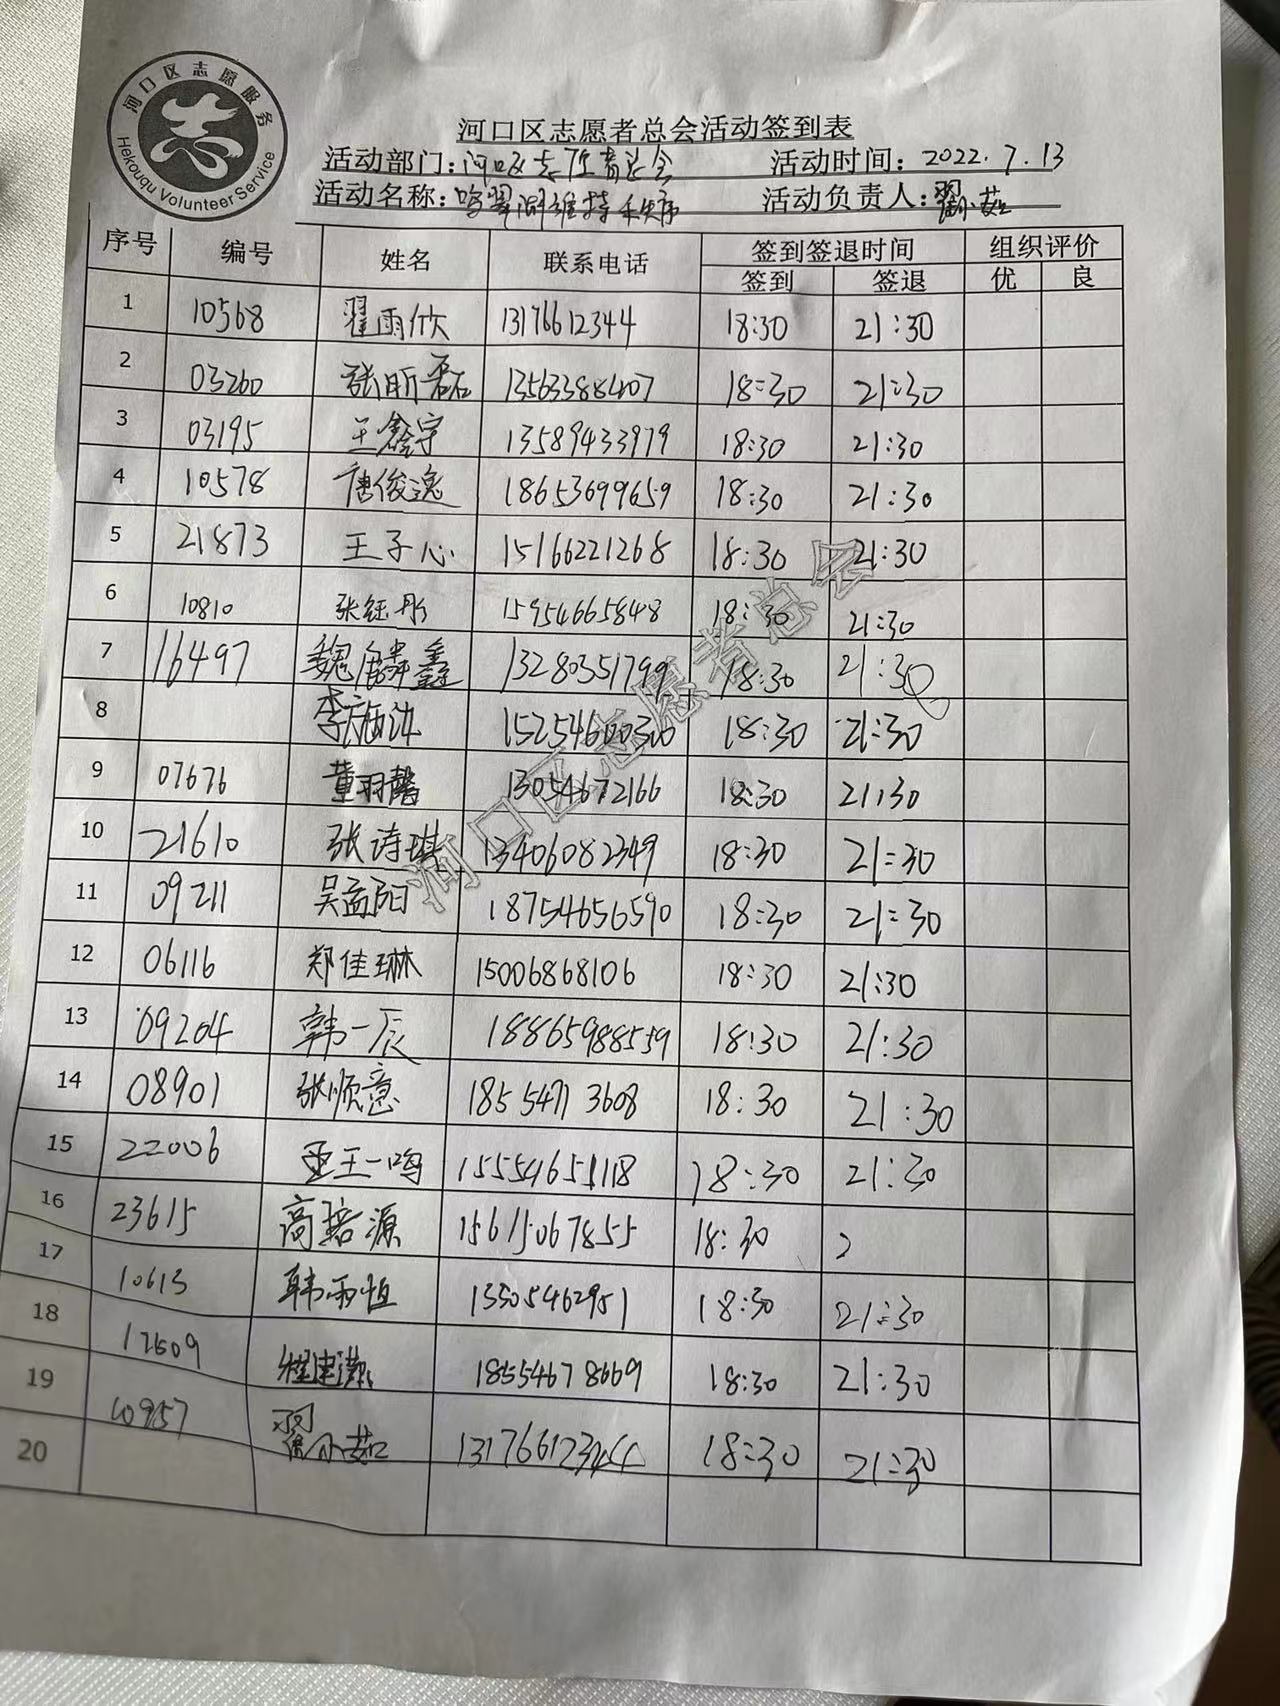 河口区志愿服务
Hekouqu Volunteer Service
志
河口区志愿者总会活动签到表
活动部门：河口区志愿者总会 活动时间：2022.7.13
活动名称：鸣翠湖维持秩序 活动负责人：翟小茹
序号 编号 姓名 联系电话 签到签退时间 组织评价
签到 签退 优 良
1 10568 翟雨欣 13176612344 18:30 21:30
2 03260 张昕磊 13563388407 18:30 21:30
3 03195 王鑫宇 13589433979 18:30 21:30
4 10578 唐俊逸 18653699659 18:30 21:30
5 21873 王子心 15166221268 18:30 21:30
6 10810 张钰彤 15954665848 18:30 21:30
7 16497 魏麟鑫 13280351799 18:30 21:30
8 15254600300 18:30 21:30
9 07676 董羽馨 13054672166 18:30 21:30
10 21610 张诗琪 13406082349 18:30 21:30
11 09211 吴孟阳 18754656590 18:30 21:30
12 06116 郑佳琳 15006868106 18:30 21:30
13 09204 韩一辰 18865988559 18:30 21:30
14 08901 张顺意 18554713608 18:30 21:30
15 22006 王一鸣 15554651118 18:30 21:30
16 23615 高培源 15615067855 18:30 2
17 10613 韩雨恒 13305462951 18:30 21:30
18 12509 18554678669 18:30 21:30
19 10957 翟小茹 13176612344 18:30 21:30
20
河口区志愿者总会